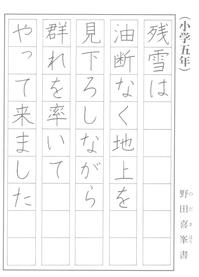 (小学五年)
残雪は
油断なく地上を
見下ろしながら
群れを率いて
やって来ました
野田喜峯書